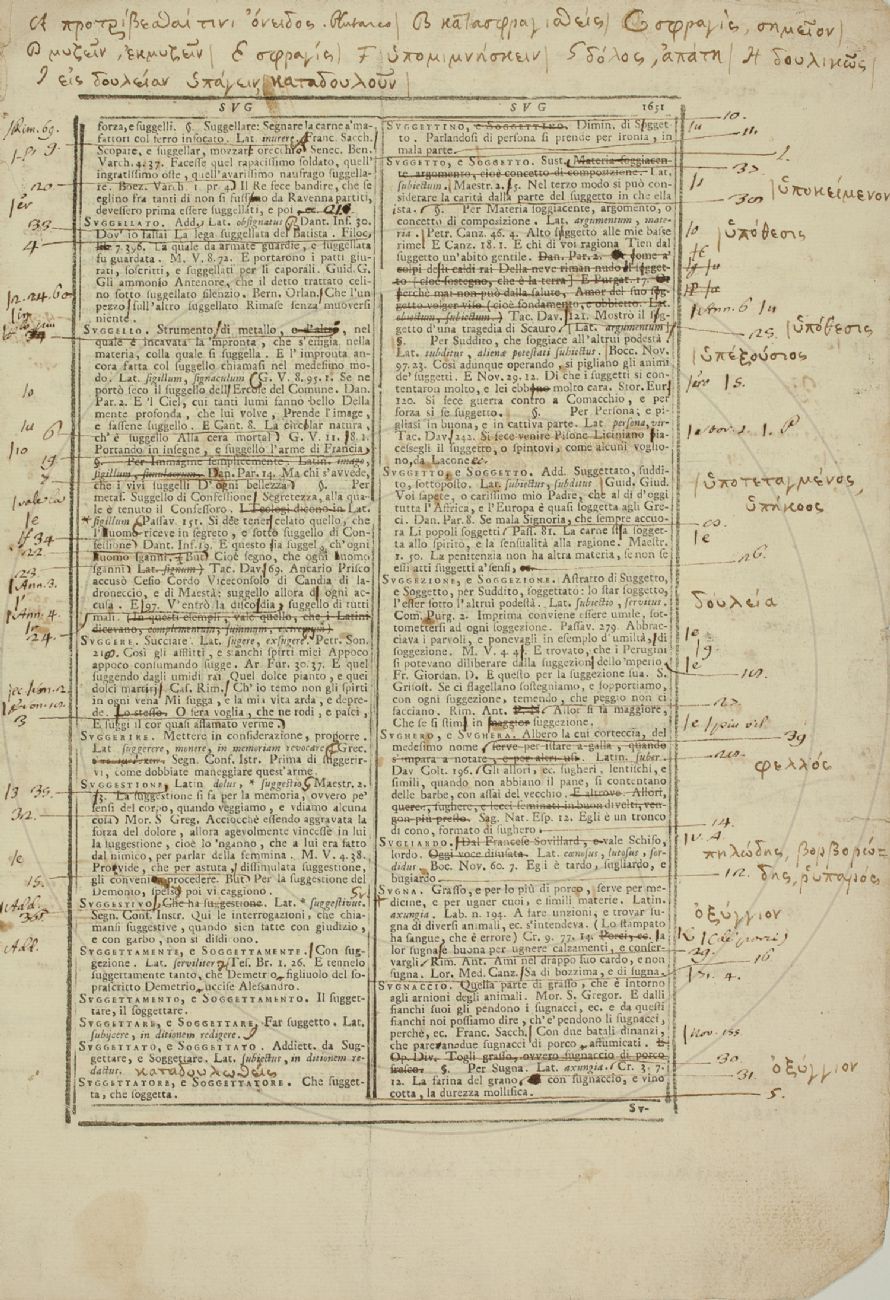 A προστρίβεσθαί τινι ὄνειδος. Plutarco | B κατασφραγισθείς | C σφραγίς, σημεῖον |
D μυζεῖν, ἐκμυζεῖν | E σφραγίς | F ὑπομιμνήσκειν | G δόλος, ἀπάτη | H δουλικῶς |
I εἰς δουλείαν ὑπάγειν, καταδουλοῦν |
SVG
forza, e suggelli. §. Suggellare: Segnare la carne a'ma-
fattori col ferro infocato. Lat. inurere. Franc. Sacch.
Scopare, e suggellar, mozzar orecchio. Senec. Ben.
Varch. 4. 37. Facesse quel rapacissimo soldato, quell'
ingratissimo oste, quell'avarissimo naufrago suggella-
re. Boez. Varch. 1. pr. 4. Il Re fece bandire, che se
eglino fra tanti dì non si fussimo da Ravenna partiti,
devessero prima essere suggellati, e poi ec.
SVGGELLATO. Add. Lat. obsignatus. Dant. Inf. 30.
Dov'io falsai La lega suggellata del Batista. Filoc.
7. 396. La quale da armate guardie, e suggellata
fu guardata. M. V. 8. 72. E portarono i patti giu-
rati, soscritti, e suggellati per li caporali. Guid. G.
Gli ammonio Antenore, che il detto trattato celi-
no sotto suggellato silenzio. Bern. Orlan. Che l'un
pezzo sull'altro suggellato Rimase senza muoversi
niente.
SVGGELLO. Strumento di metallo, o d'altro, nel
quale è incavata la mpronta, che s'effigia nella
materia, colla quale si suggella. E l'impronta an-
cora fatta col suggello chiamasi nel medesimo mo-
do. Lat. sigillum, signaculum. G. V. 8. 95. 1. Se ne
portò seco il suggello dell'Ercole del Comune. Dan.
Par. 2. E 'l Ciel, cui tanti lumi fanno bello Della
mente profonda, che lui volve, Prende l'image,
e fassene suggello. E Cant. 8. La circular natura,
ch'è suggello Alla cera mortal. G. V. 11. 8. 2.
Portando in insegne, e suggello l'arme di Francia.
§. Per Immagine semplicemente. Latin. imago,
sigillum, simulacrum. Dan. Par. 14. Ma chi s'avvede,
che i vivi suggelli D'ogni bellezza. §. Per
metaf. Suggello di Confessione. Segretezza, alla qua-
le è tenuto il Confessoro. I Teologi dicono in Lat.
* sigillum. Passav. 151. Si dee tener celato quello, che
l'huomo riceve in segreto, e sotto suggello di Con-
fessione. Dant. Inf. 19. E questo sia suggel, ch'ogni
huomo sganni. But. Cioè segno, che ogni huomo
sganni. Lat. signum. Tac. Dav. 69. Ancario Prisco
accusò Cesio Cordo Viceconsolo di Candia di la-
droneccio, e di Maestà: suggello allora di ogni ac-
cusa. E 97. V'entrò la discordia, suggello di tutti
mali. (In questi esempli, vale quello, che i Latini
dicevano, complementum, summum, extremum)
SVGGERE. Succiare. Lat. sugere, exsugere. Petr. Son.
219. Così gli afflitti, e stanchi spirti miei Appoco
appoco consumando sugge. Ar. Fur. 30. 37. E quel
suggendo dagli umidi rai Quel dolce pianto, e quei
dolci martiri. Cas. Rim. Ch'io temo non gli spirti
in ogni vena Mi sugga, e la mia vita arda, e depre-
de. Lo stesso. O fera voglia, che ne rodi, e pasci,
E suggi il cor quasi affamato verme.
SVGGERIRE. Mettere in considerazione, proporre.
Lat. suggerere, monere, in memoriam revocare. Grec.
Segn. Conf. Istr. Prima di suggerir-
vi, come dobbiate maneggiare quest'arme.
SVGGESTIONE. Latin. dolus, * suggestio. Maestr. 2.
13. La suggestione si fa per la memoria, ovvero pe'
sensi del corpo, quando veggiamo, e vdiamo alcuna
cosa. Mor. S. Greg. Acciocchè essendo aggravata la
forza del dolore, allora agevolmente vincesse in lui
la suggestione, cioè lo 'nganno, che a lui era fatto
dal nimico, per parlar della femmina. M. V. 4. 38.
Provide, che per astuta, dissimulata suggestione,
gli convenia procedere. But. Per la suggestione del
Demonio, spesso poi vi caggiono.
SVGGESTIVO. Che ha suggestione. Lat. * suggestivus.
Segn. Conf. Instr. Qui le interrogazioni, che chia-
mansi suggestive, quando sien fatte con giudizio,
e con garbo, non si disdi ono.
SVGGETTAMENTE, e SOGGETTAMENTE. Con sug-
gezione. Lat. serviliter. Tes. Br. 1. 26. E tennelo
suggettamente tanto, che Demetrio figliuolo del so-
prascritto Demetrio uccise Alessandro.
SVGGETTAMENTO, e SOGGETTAMENTO. Il sugget-
tare, il soggettare.
SVGGETTARE, e SOGGETTARE. Far suggetto. Lat.
subijcere, in ditionem redigere.
SVGGETTATO, e SOGGETTATO. Addiett. da Sug-
gettare, e Soggettare. Lat. subiectus, in ditionem re-
dactus. καταδουλωθείς
SVGGETTATORE, e SOGGETTATORE. Che sugget-
ta, che soggetta.
SVG 1631
SVGGETTINO, e SOGGETTINO. Dimin. di Sogget-
to. Parlandosi di persona si prende per ironia, in
mala parte.
SVGGETTO, e SOGGETTO. Sust. Materia soggiacen-
te argomento, cioè concetto di composizione. Lat.
subiectum. Maestr. 2. 5. Nel terzo modo si può con-
siderare la carità dalla parte del suggetto in che ella
ista. §. Per Materia soggiacente, argomento, o
concetto di composizione. Lat. argumentum, mate-
ria. Petr. Canz. 46. 4. Alto suggetto alle mie basse
rime. E Canz. 18. 1. E chi di voi ragiona Tien dal
suggetto un'abito gentile. Dan. Par. 2. Or come a'
colpi delli caldi rai Della neve riman nudo il sugget-
to (cioè sostegno, che è la terra) E Purgat. 17. Or
perchè mai non può dalla salute, Amor del suo sug-
getto volger viso (cioè fondamento, e obbietto. Lat.
obiectum, subiectum.) Tac. Dav. 121. Mostrò il sug-
getto d'una tragedia di Scauro. (Lat. argumentum)
§. Per Suddito, che soggiace all'altrui podestà.
Lat. subditus, alienæ potestati subiectus. Bocc. Nov.
97. 23. Così adunque operando, si pigliano gli animi
de' suggetti. E Nov. 29. 12. Di che i suggetti si con-
tentaron molto, e lei ebbono molto cara. Stor. Eur.
120. Si fece guerra contro a Comacchio, e per
forza si fe suggetto. §. Per Persona; e pi-
gliasi in buona, e in cattiva parte. Lat. persona, vir.
Tac. Dav. 242. Si fece venire Pisone Liciniano pia-
cesegli il suggetto, o spintovi, come alcuni voglio-
no, da Lacone ec.
SVGGETTO, e SOGGETTO. Add. Suggettato, suddi-
to, sottoposto. Lat. subiectus, subditus. Guid. Giud.
Voi sapete, o carissimo mio Padre, che al dì d'oggi
tutta l'Affrica, e l'Europa è quasi suggetta agli Gre-
ci. Dan. Par. 8. Se mala Signoria, che sempre accuo-
ra Li popoli soggetti. Pass. 81. La carne sia sogget-
ta allo spirito, e la sensualità alla ragione. Maestr.
1. 50. La penitenzia non ha altra materia, se non se
essi atti suggetti a'sensi.
SVGGEZIONE, e SOGGEZIONE. Astratto di Suggetto,
e Soggetto, per Suddito, soggettato: lo star soggetto,
l'esser sotto l'altrui podestà. Lat. subiectio, servitus.
Com. Purg. 2. Imprima conviene essere umile, sot-
tomettersi ad ogni soggezione. Passav. 279. Abbrac-
ciava i parvoli, e ponevagli in esemplo d'umiltà, di
soggezione. M. V. 4. 4. E trovato, che i Perugini
si potevano diliberare dalla suggezione dello 'mperio.
Fr. Giordan. D. E questo per la suggezione sua. S.
Grisost. Se ci flagellano sostegniamo, e sopportiamo,
con ogni suggezione, temendo, che peggio non ci
facciano. Rim. Ant. Allor si fa maggiore,
Che se si stima in maggior suggezione.
SVGHERO, e SVGHERA. Albero la cui corteccia, del
medesimo nome serve per issare a galla, quando
s'impara a notare, e per altri usi. Latin. suber.
Dav. Colt. 196. Gli allori, ec. sugheri, lentischi, e
simili, quando non abbiano il pane, si contentano
delle barbe, con assai del vecchio. E altrove. Allori,
querce, sughere, e lecci seminati in buon divelti, ven-
gon più presto. Sag. Nat. Esp. 12. Egli è un tronco
di cono, formato di sughero.
SVGLIARDO. Dal Francese Sovillard, e vale Schifo,
lordo. Oggi voce disusata. Lat. cænosus, lutosus, sor-
didus. Boc. Nov. 60. 7. Egli è tardo, sugliardo, e
bugiardo.
SVGNA. Grasso, e per lo più di porco, serve per me-
dicine, e per ugner cuoi, e simili materie. Latin.
axungia. Lab. n. 194. A fare unzioni, e trovar su-
gna di diversi animali, ec. s'intendeva. (Lo stampato
ha sangue, che è errore) Cr. 9. 77. 14. Porci, ec. la
lor sugna è buona per ugnere calzamenti, e conser-
vargli. Rim. Ant. Ami nel drappo suo cardo, e non
sugna. Lor. Med. Canz. Sa di bozzima, e di sugna.
SVGNACCIO. Quella parte di grasso, che è intorno
agli arnioni degli animali. Mor. S. Gregor. E dalli
fianchi suoi gli pendono i sugnacci, ec. e da questi
fianchi noi possiamo dire, ch'e' pendono li sugnacci,
perchè, ec. Franc. Sacch. Con due batali dinanzi,
che parevano due sugnacci di porco affumicati.
Op. Div. Togli grasso, ovvero sugnaccio di porco
fresco. §. Per Sugna. Lat. axungia. Cr. 3. 7.
12. La farina del grano con sugnaccio, e vino
cotta, la durezza mollifica.
Sv-
ὑποκείμενον
ὑπόθεσις
ὑπόθεσις
ὑπεξούσιος
ὑποτεταγμένος,
ὑπήκοος
δουλεία
φελλός
πηλώδης, βορβορώ-
δης, ῥυπαρός
ὀξύγγιον
ὀξύγγιον